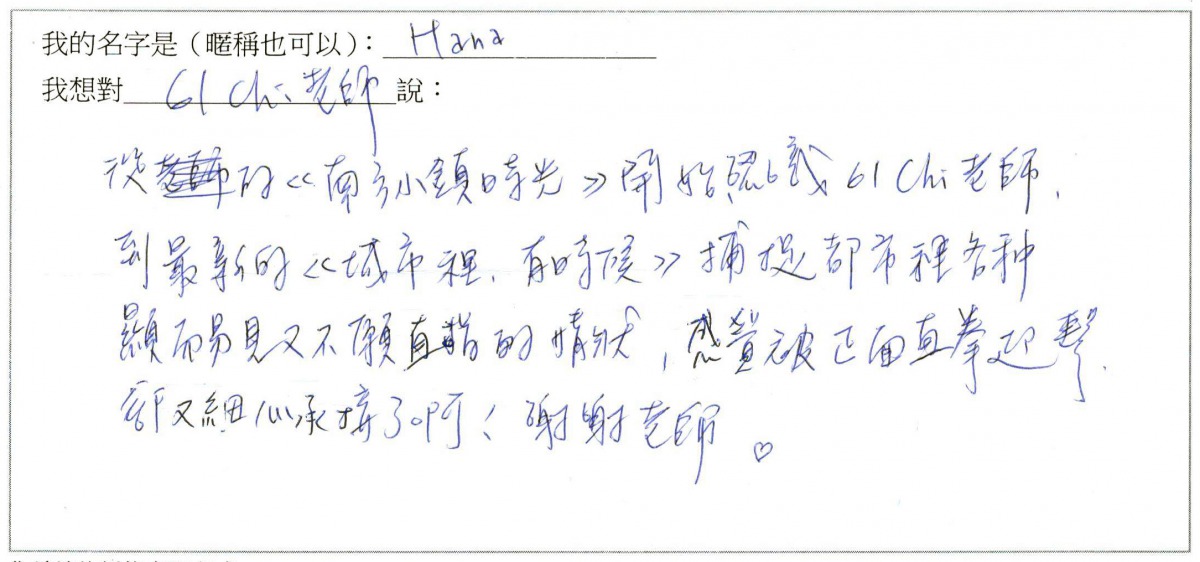 我的名字是（暱稱也可以）：Hana
我想對 61 Chi 老師 說：
從的《南方小鎮時光》開始認識 61 Chi 老師，
到最新的《城市裡，有時候》捕捉都市裡各种
顯而易見又不願直指的情狀，感覺被正面直拳迎擊，
卻又細心承接了啊！謝謝老師。♡